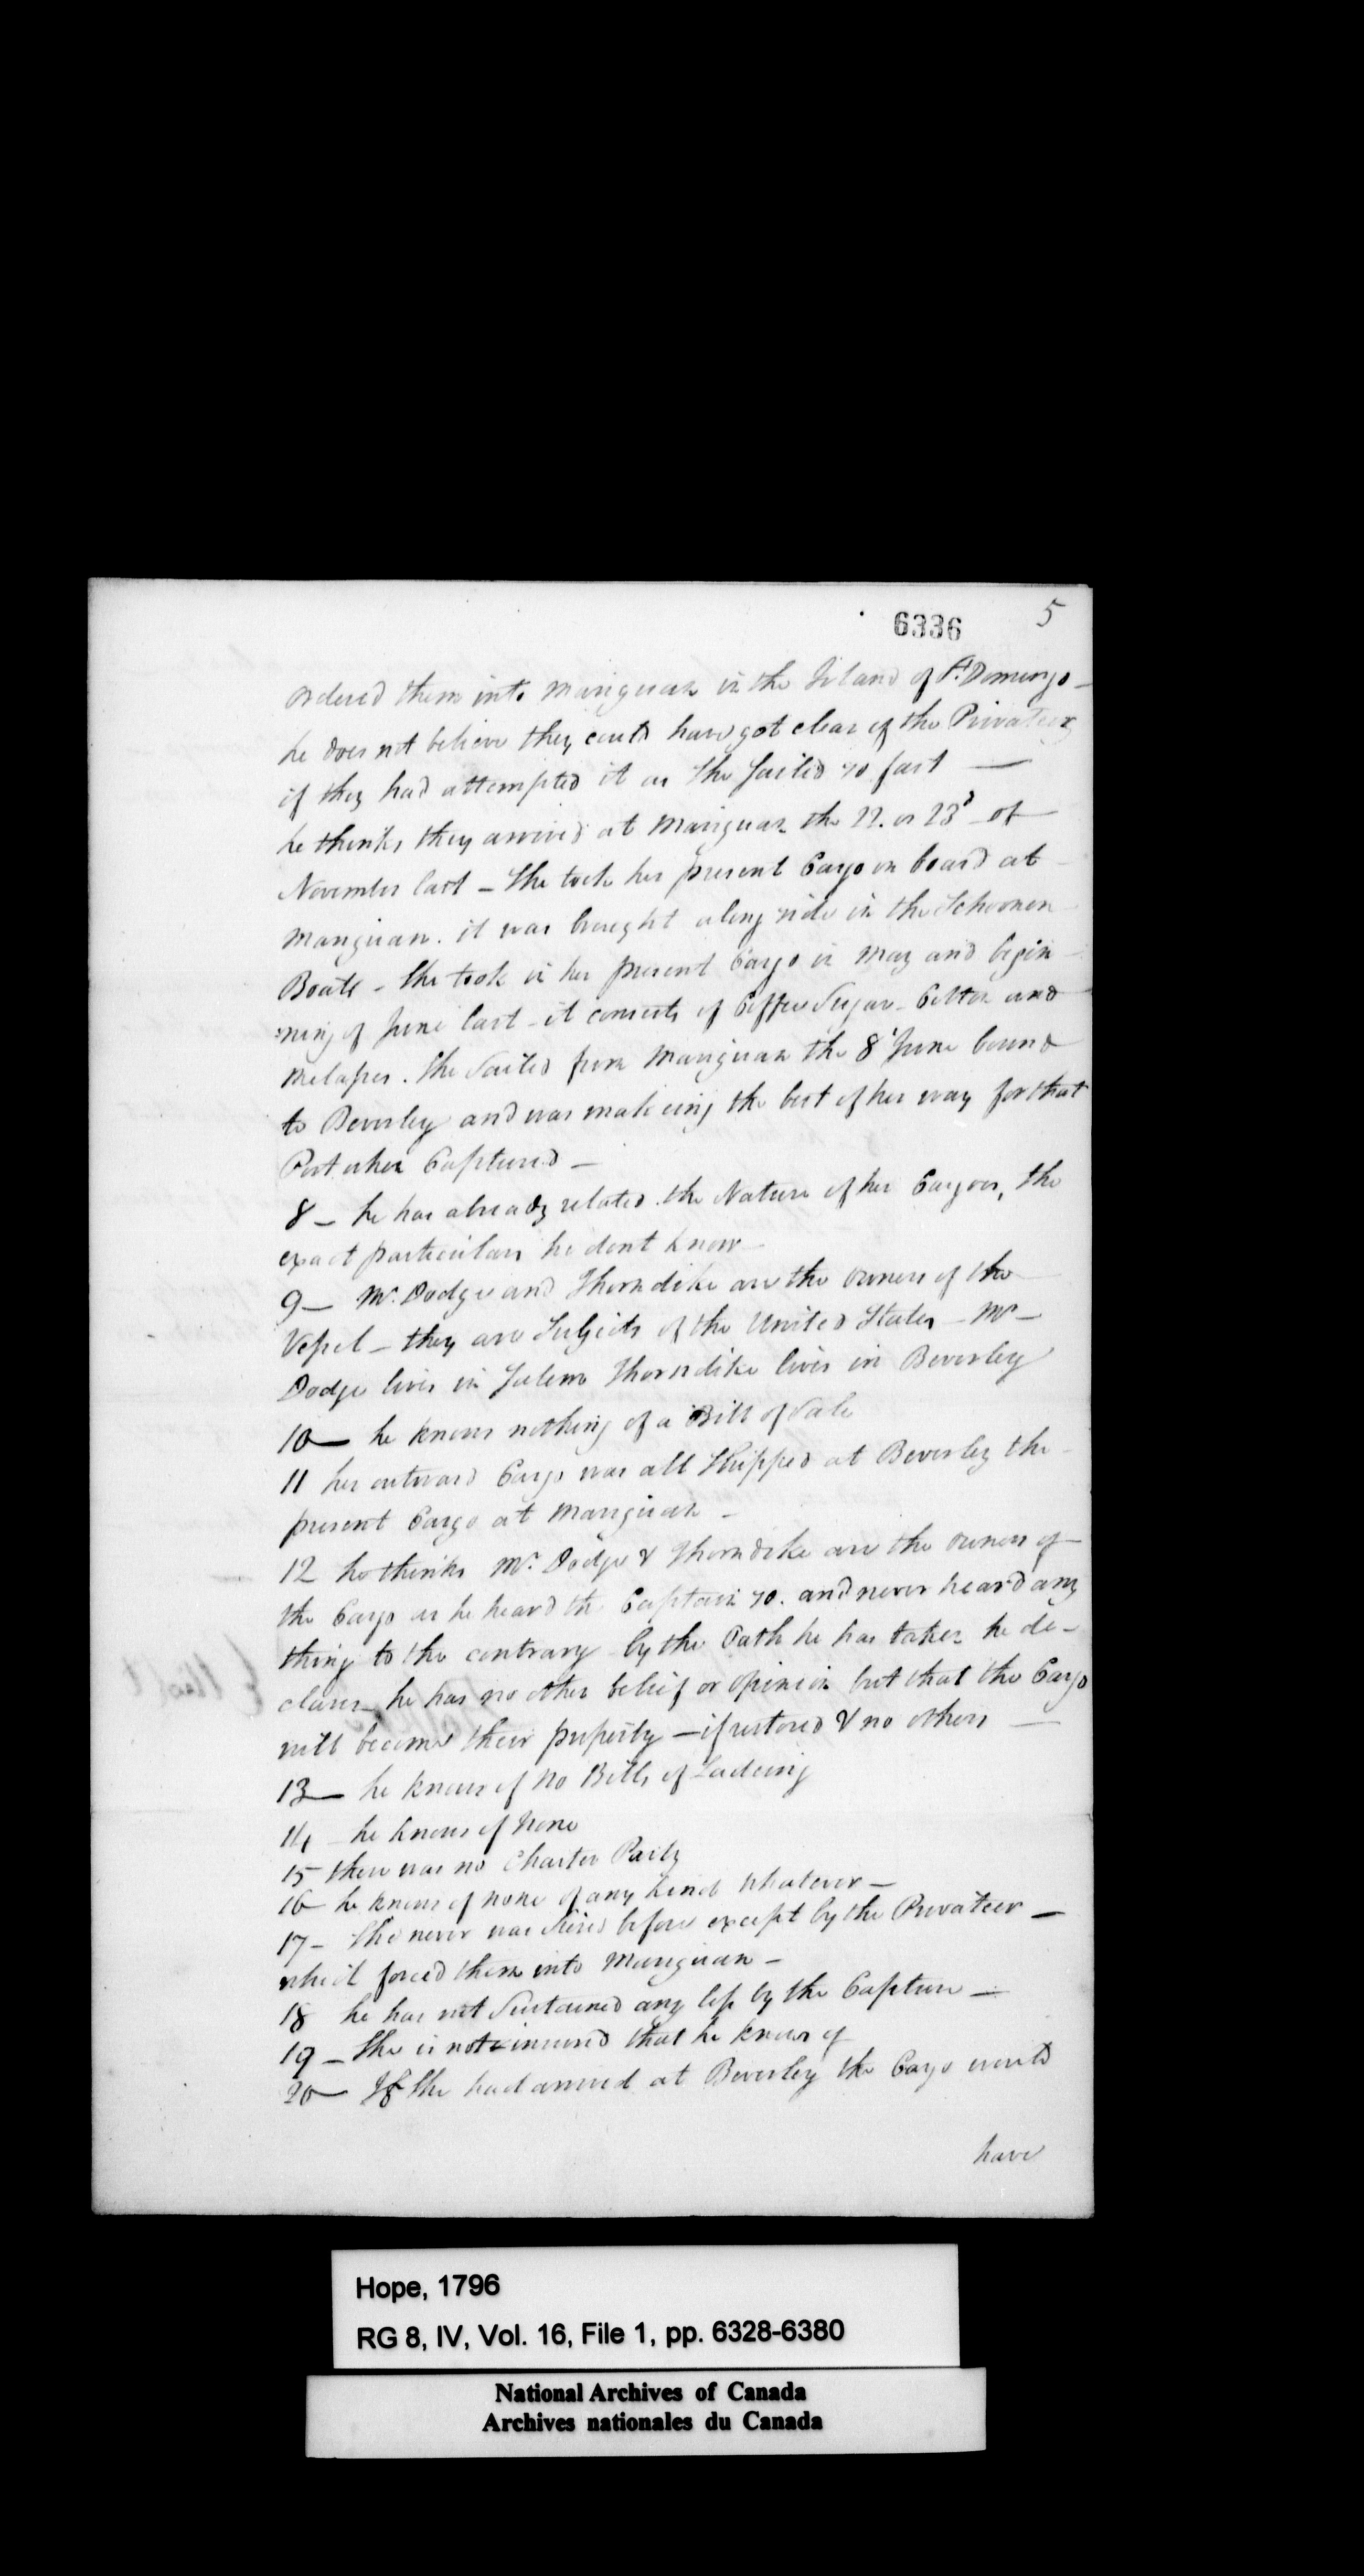 6336 5
ordered them into Mariguan in the Island of St. Domingo -
he does not believe they could have got clear of the Privateer
if they had attempted it as She Sailed so fast —
he thinks they arrived at Mariguan the 22. or 23d of
November last - She took her present Cargo on board at
Mariguan. it was brought along side in the Schooners
Boats - She took in her present Cargo in May and begin
:ning of June last - it consists of Coffee Sugar - Cotton and
Molasses. She Sailed from Mariguan the 8 June bound
to Beverley and was makeing the best of her way for that
Port when Captured -
8 - he has already related the Nature of her Cargoes, the
exact particulars he dont know -
9 - Mr. Dodge and Thorndike are the owners of the
Vessel - they are Subjects of the United States - Mr -
Dodge lives in Salem Thorndike lives in Beverley
10 - he knows nothing of a Bill of Sale
11 her outward Cargo was all Shipped at Beverley the
present Cargo at Mariguan -
12 he thinks Mr. Dodge & Thorndike are the owners of
the Cargo as he heard the Captain so. and never heard any
thing to the contrary by the Oath he has taken he de-
clares he has no other belief or opinion but that the Cargo
will become their property - if restored & no others —
13 - he knows of no Bills of Ladeing
14 - he knows of None
15 there was no Charter Party
16 - he knows of none of any kind whatever -
17 - She never was Seized before except by the Privateer -
which forced them into Mariguan -
18 he has not Sustained any loss by the Capture -
19 - She is not insured that he knows of
20 - If She had arrived at Beverley the Cargo would
have
Hope, 1796
RG 8, IV, Vol. 16, File 1, pp. 6328-6380
National Archives of Canada
Archives nationales du Canada